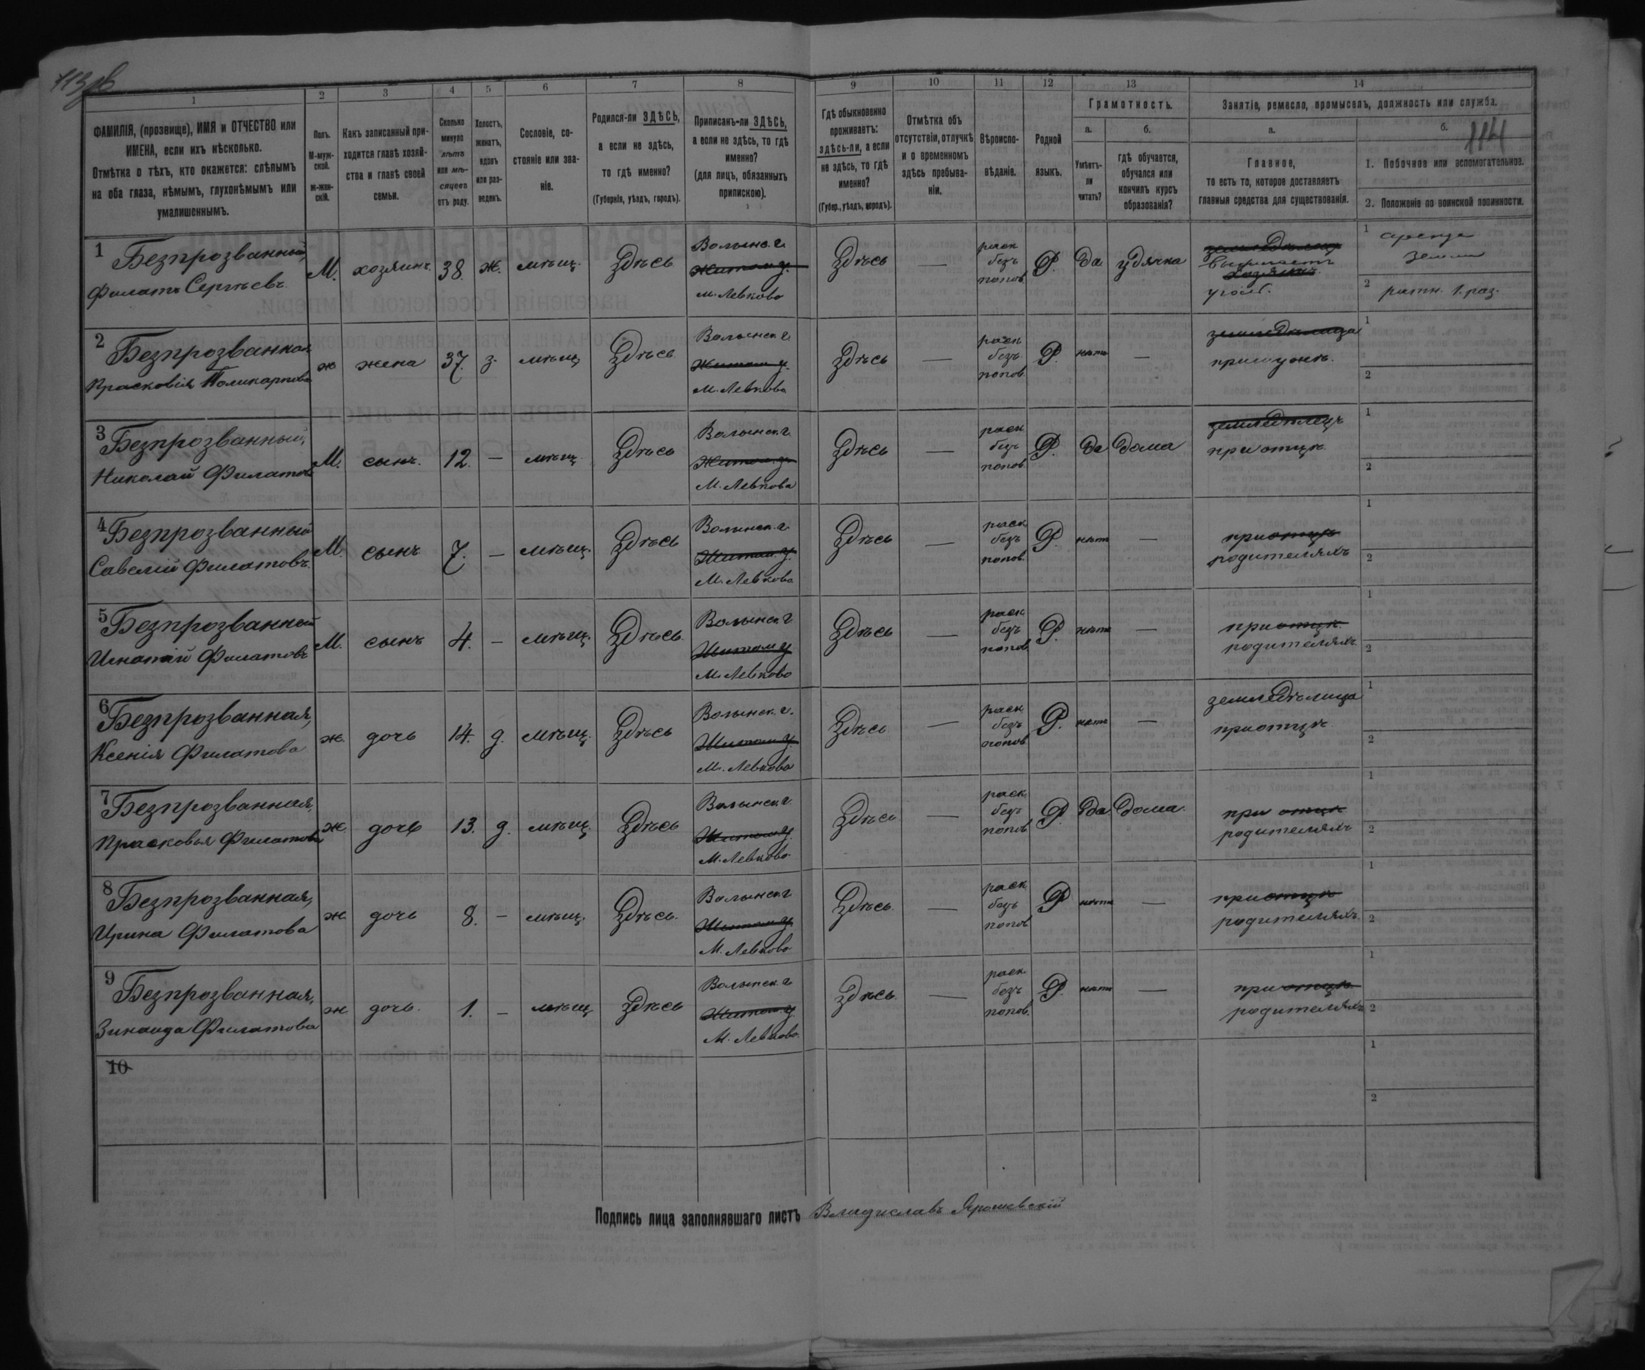 113 об
114
1
2
3
4
5
6
7
8
9
10
11
12
13
14
ФАМИЛІЯ, (прозвище), ИМЯ и ОТЧЕСТВО или
ИМЕНА, если ихъ нѣсколько.
Отмѣтка о тѣхъ, кто окажется: слѣпымъ
на оба глаза, нѣмымъ, глухонѣмымъ или
умалишеннымъ.
Полъ.
М-муж-
ской.
ж-жен-
скій.
Какъ записанный при-
ходится главѣ хозяй-
ства и главѣ своей
семьи.
Сколько
минуло
лѣтъ
или мѣ-
сяцевъ
отъ роду.
Холостъ,
женатъ,
вдовъ
или раз-
веденъ.
Сословіе, со-
стояніе или зва-
ніе.
Родился-ли ЗДѢСЬ,
а если не здѣсь,
то гдѣ именно?
(Губернія, уѣздъ, городъ).
Приписанъ-ли ЗДѢСЬ,
а если не здѣсь, то гдѣ
именно?
(для лицъ, обязанныхъ
припискою).
Гдѣ обыкновенно
проживаетъ:
здѣсь-ли, а если
не здѣсь, то гдѣ
именно?
(Губер., уѣздъ, городъ).
Отмѣтка объ
отсутствіи, отлучкѣ
и о временномъ
здѣсь пребыва-
ніи.
Вѣроиспо-
вѣданіе.
Родной
языкъ.
Грамотность.
а.
Умѣетъ-
ли
читать?
б.
гдѣ обучается,
обучался или
кончилъ курсъ
образованія?
Занятіе, ремесло, промыселъ, должность или служба.
а.
Главное,
то есть то, которое доставляетъ
главныя средства для существованія.
б.
1. Побочное или вспомогательное.
2. Положеніе по воинской повинности.
1 Безпрозванный, Филатъ Сергѣевъ
М. хозяинъ 38 ж. мѣщ. Здѣсь
Волынс. г.
Житом. у.
м. Левково
Здѣсь
раск
безъ
попов
Р. да у дячка
земледѣлец
хозяинъ
1 аренда
земли
2 ратн. 1. раз.
2 Безпрозванная Прасковія Поликарпова
ж жена 37. з. мѣщ Здѣсь
Волынск г.
Житом у.
М. Левкова
Здѣсь —
раск
безъ
попов
Р. нѣтъ —
земледѣлица
при мужѣ.
1
2
3 Безпрозванный, Николай Филатовъ
М. сынъ. 12. — мѣщ Здѣсь
Волынск г.
Житом у.
М. Левкова
Здѣсь —
раск
безъ
попов
Р. да дома
земледѣлецъ
при отцѣ
1
2
4 Безпрозванный Савелій Филатовъ
М. сынъ 7. — мѣщ. Здѣсь
Волынск г.
Житом у.
М. Левкова
Здѣсь —
раск
безъ
попов
Р. нѣтъ —
при отцѣ
родителяхъ
1
2
5 Безпрозванный Игнатій Филатовъ
М. сынъ 4. — мѣщ. Здѣсь
Волынск г
Житом у
М. Левково
Здѣсь —
раск
безъ
попов
Р. нѣтъ —
при отцѣ
родителяхъ
1
2
6 Безпрозванная, Ксенія Филатова
ж. дочь 14. д. мѣщ. Здѣсь
Волынск г.
Житом у.
М. Левкова
Здѣсь —
раск
безъ
попов
Р. нѣтъ —
земледѣлица
при отцѣ
1
2
7 Безпрозванная, Прасковья Филатова
ж. дочь 13. д. мѣщ. Здѣсь
Волынск г
Житом у.
М. Левково
Здѣсь —
раск
безъ
попов
Р. да дома
при отцѣ
родителяхъ
1
2
8 Безпрозванная, Ирина Филатова
ж. дочь 8. — мѣщ. Здѣсь.
Волынск г
Житом у.
М. Левково
Здѣсь —
раск
безъ
попов
Р нѣтъ —
при отцѣ
родителяхъ.
1
2
9 Безпрозванная, Зинаида Филатова
ж дочь. 1. — мѣщ Здѣсь
Волынск г
Житом у
М. Левково
Здѣсь —
раск
безъ
попов.
Р. нѣтъ —
при отцѣ
родителяхъ
1
2
10
1
2
Подпись лица заполнявшаго листъ Владиславъ Ярошевскій